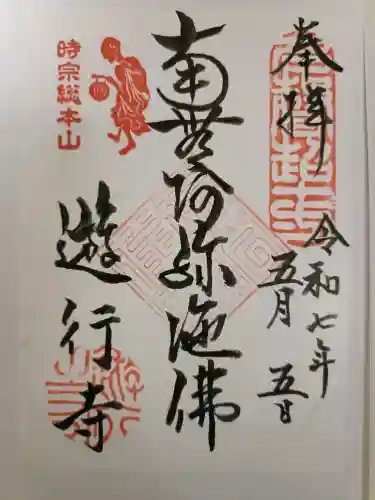 奉拝
令和七年
五月五日
南無阿弥陀佛
時宗総本山
遊行寺